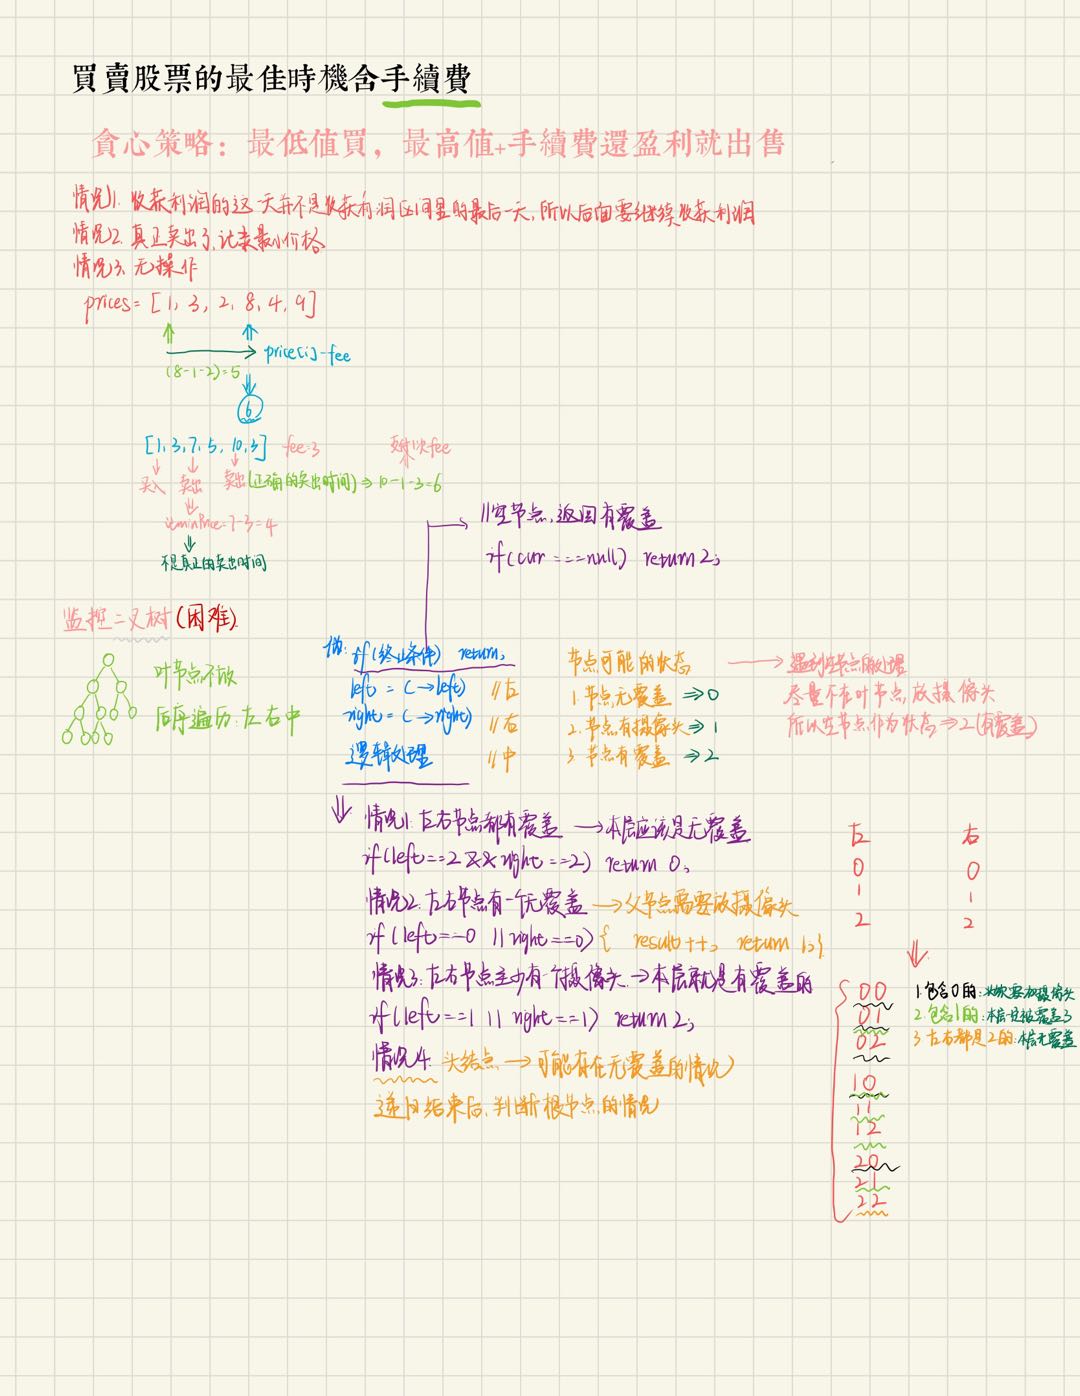 買賣股票的最佳時機含手續費
貪心策略：最低值買，最高值+手續費還盈利就出售
情况1. 收获利润的这一天并不是收获利润区间里的最后一天，所以后面要继续收获利润
情况2. 真正卖出了，记录最小价格
情况3、无操作
prices = [1, 3, 2, 8, 4, 9]
price[i]-fee
(8-1-2)=5
6
[1, 3, 7, 5, 10, 3] fee=3 fee
买入 卖出 卖出(正确的卖出时间) ⇒ 10-1-3=6
minPrice=7-3=4
不是真正的卖出时间
//空节点，返回有覆盖
if(cur ===null) return 2;
监控二叉树(困难)
叶节点不放
后序遍历：左右中
伪:
if(终止条件) return;
left = (→left) //左
right = (→right) //右
逻辑处理 //中
节点可能的状态
1. 节点无覆盖 ⇒0
2. 节点有摄像头⇒ 1
3. 节点有覆盖 ⇒2
遇到空节点的处理
尽量不在叶节点，放摄像头
所以空节点作为状态⇒2(有覆盖)
情况1: 左右节点都有覆盖 →本层应该是无覆盖
if(left==2 && right ==2) return 0;
情况2. 左右节点有一个无覆盖 →父节点需要放摄像头
if(left==0 || right==0) { result++; return 1;}
情况3: 左右节点至少有一个摄像头→本层就是有覆盖的
if(left==1 || right==1) return 2;
情况4: 头结点 →可能存在无覆盖的情况
递归结束后，判断根节点的情况
左 右
0 0
1 1
2 2
00
01
02
10
11
12
20
21
22
1.包含0的:
2.包含1的:本层是被覆盖了
3.左右都是2的:本层无覆盖